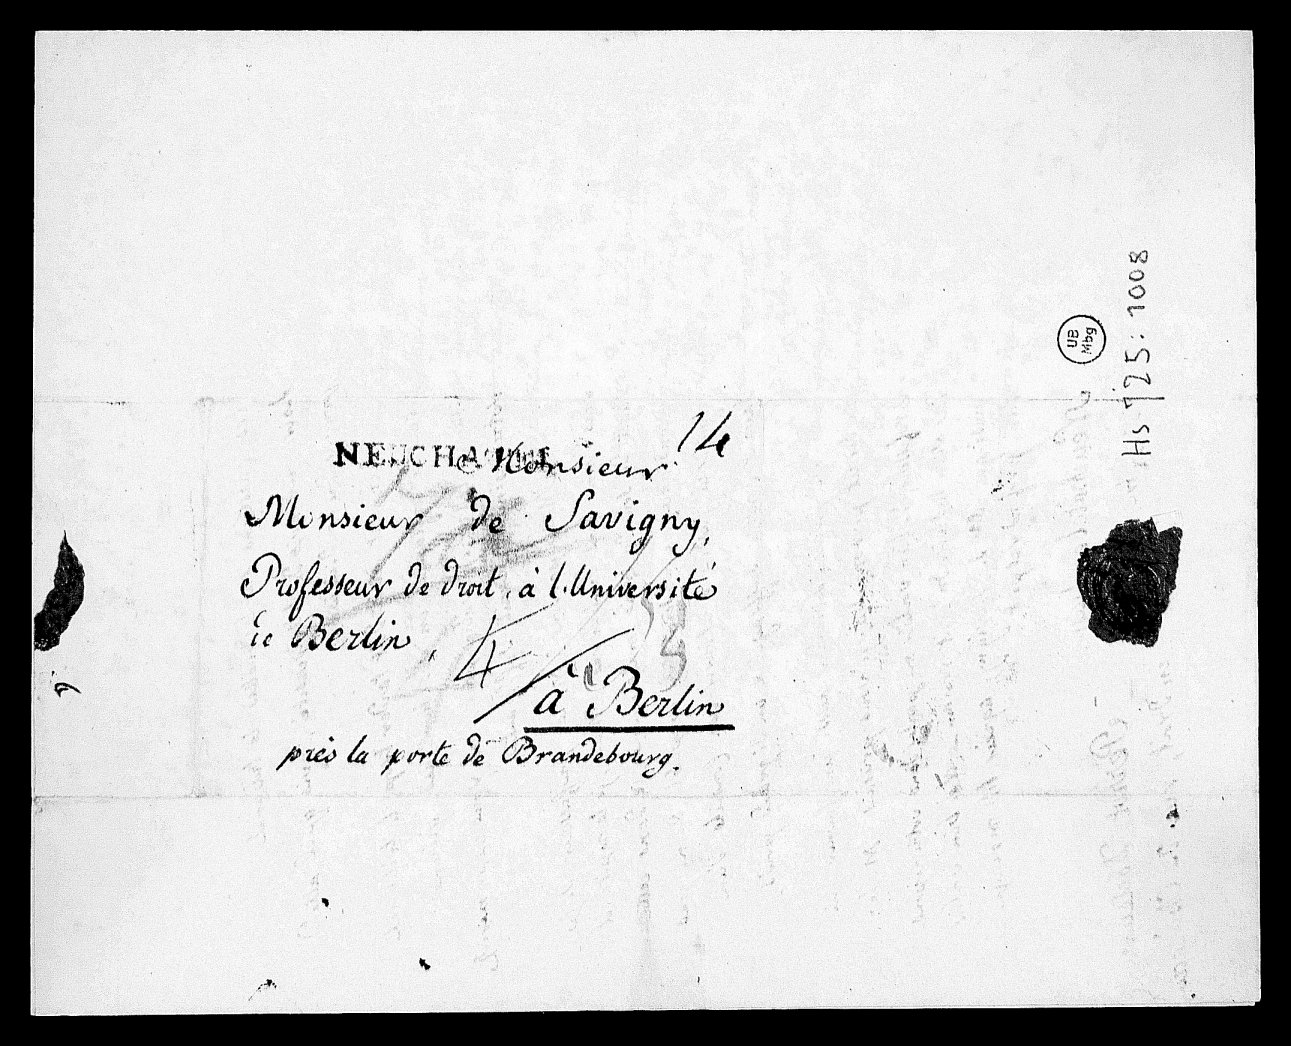 14
NEUCHATEL
à Monsieur
Monsieur de Savigny,
Professeur de droit, à l'Université
de Berlin,
4
à Berlin
près la porte de Brandebourg.
UB
Mbg
Hs 725: 1008